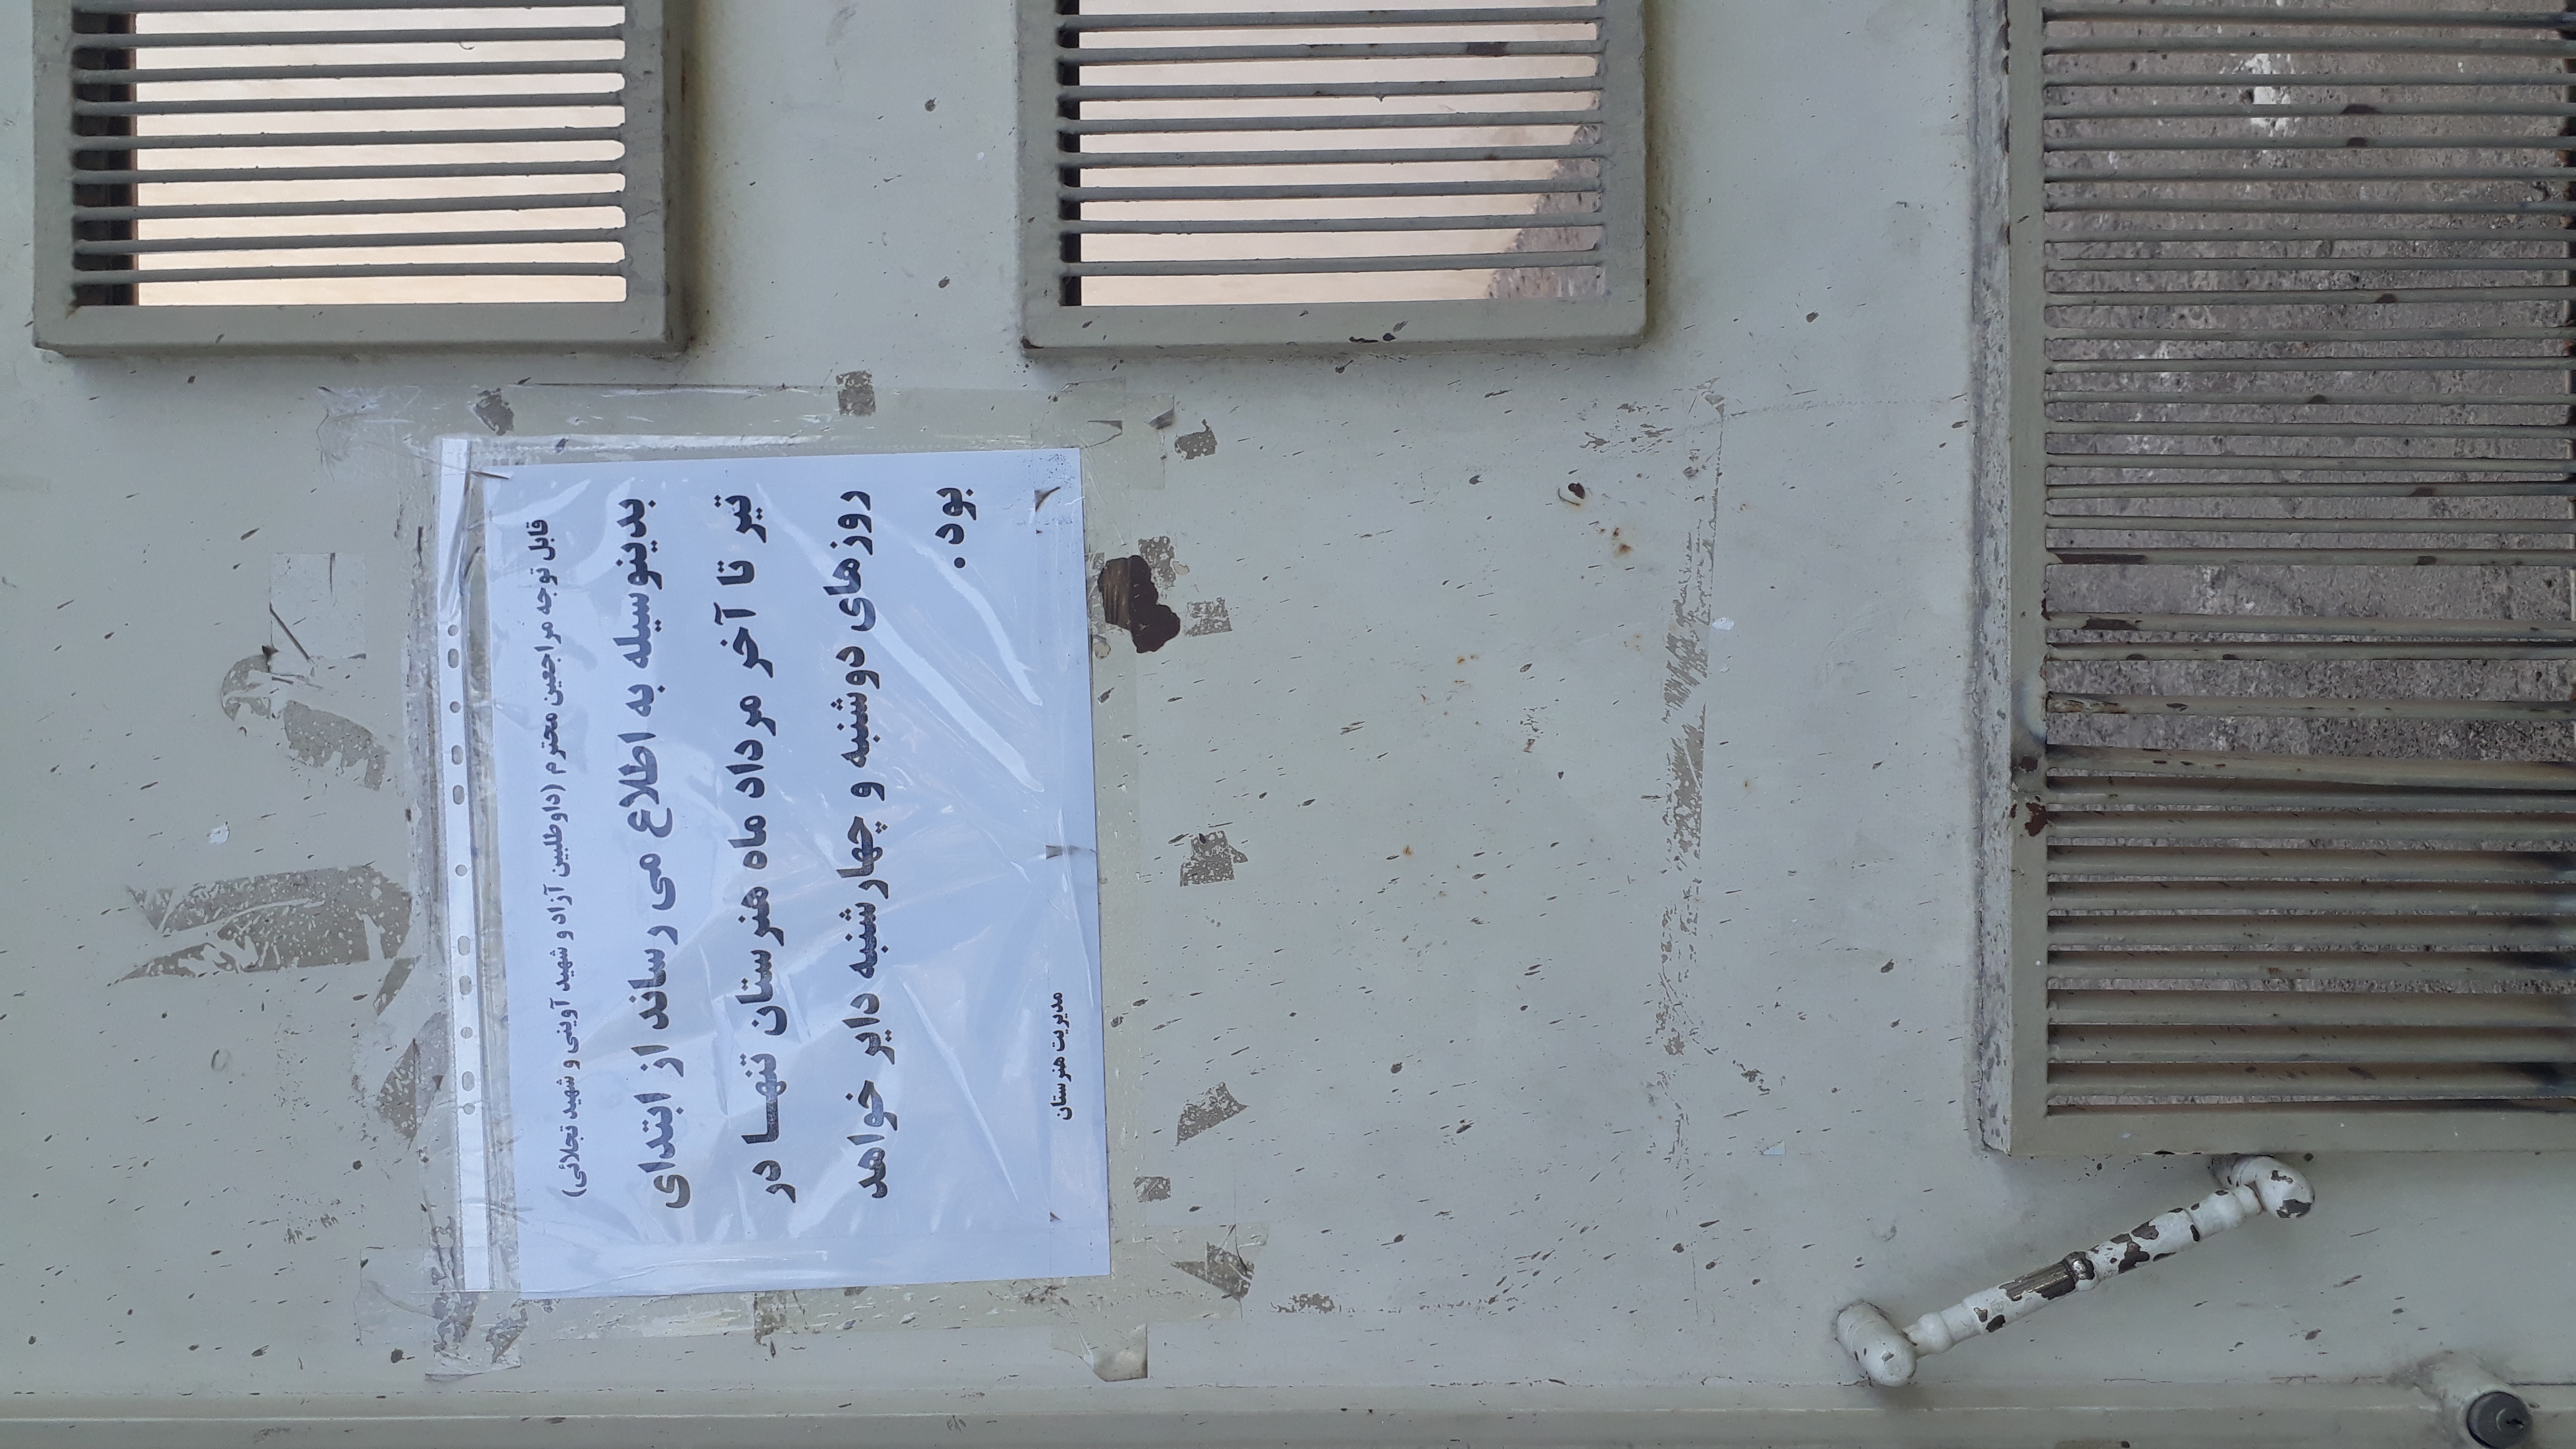 قابل توجه مراجعین محترم (داوطلبین آزاد و شهید آوینی و شهید تجلائی)
بدینوسیله به اطلاع می رساند از ابتدای
تیر تا آخر مرداد ماه هنرستان تنهـا در
روزهای دوشنبه و چهارشنبه دایر خواهد
بود.
مدیریت هنرستان